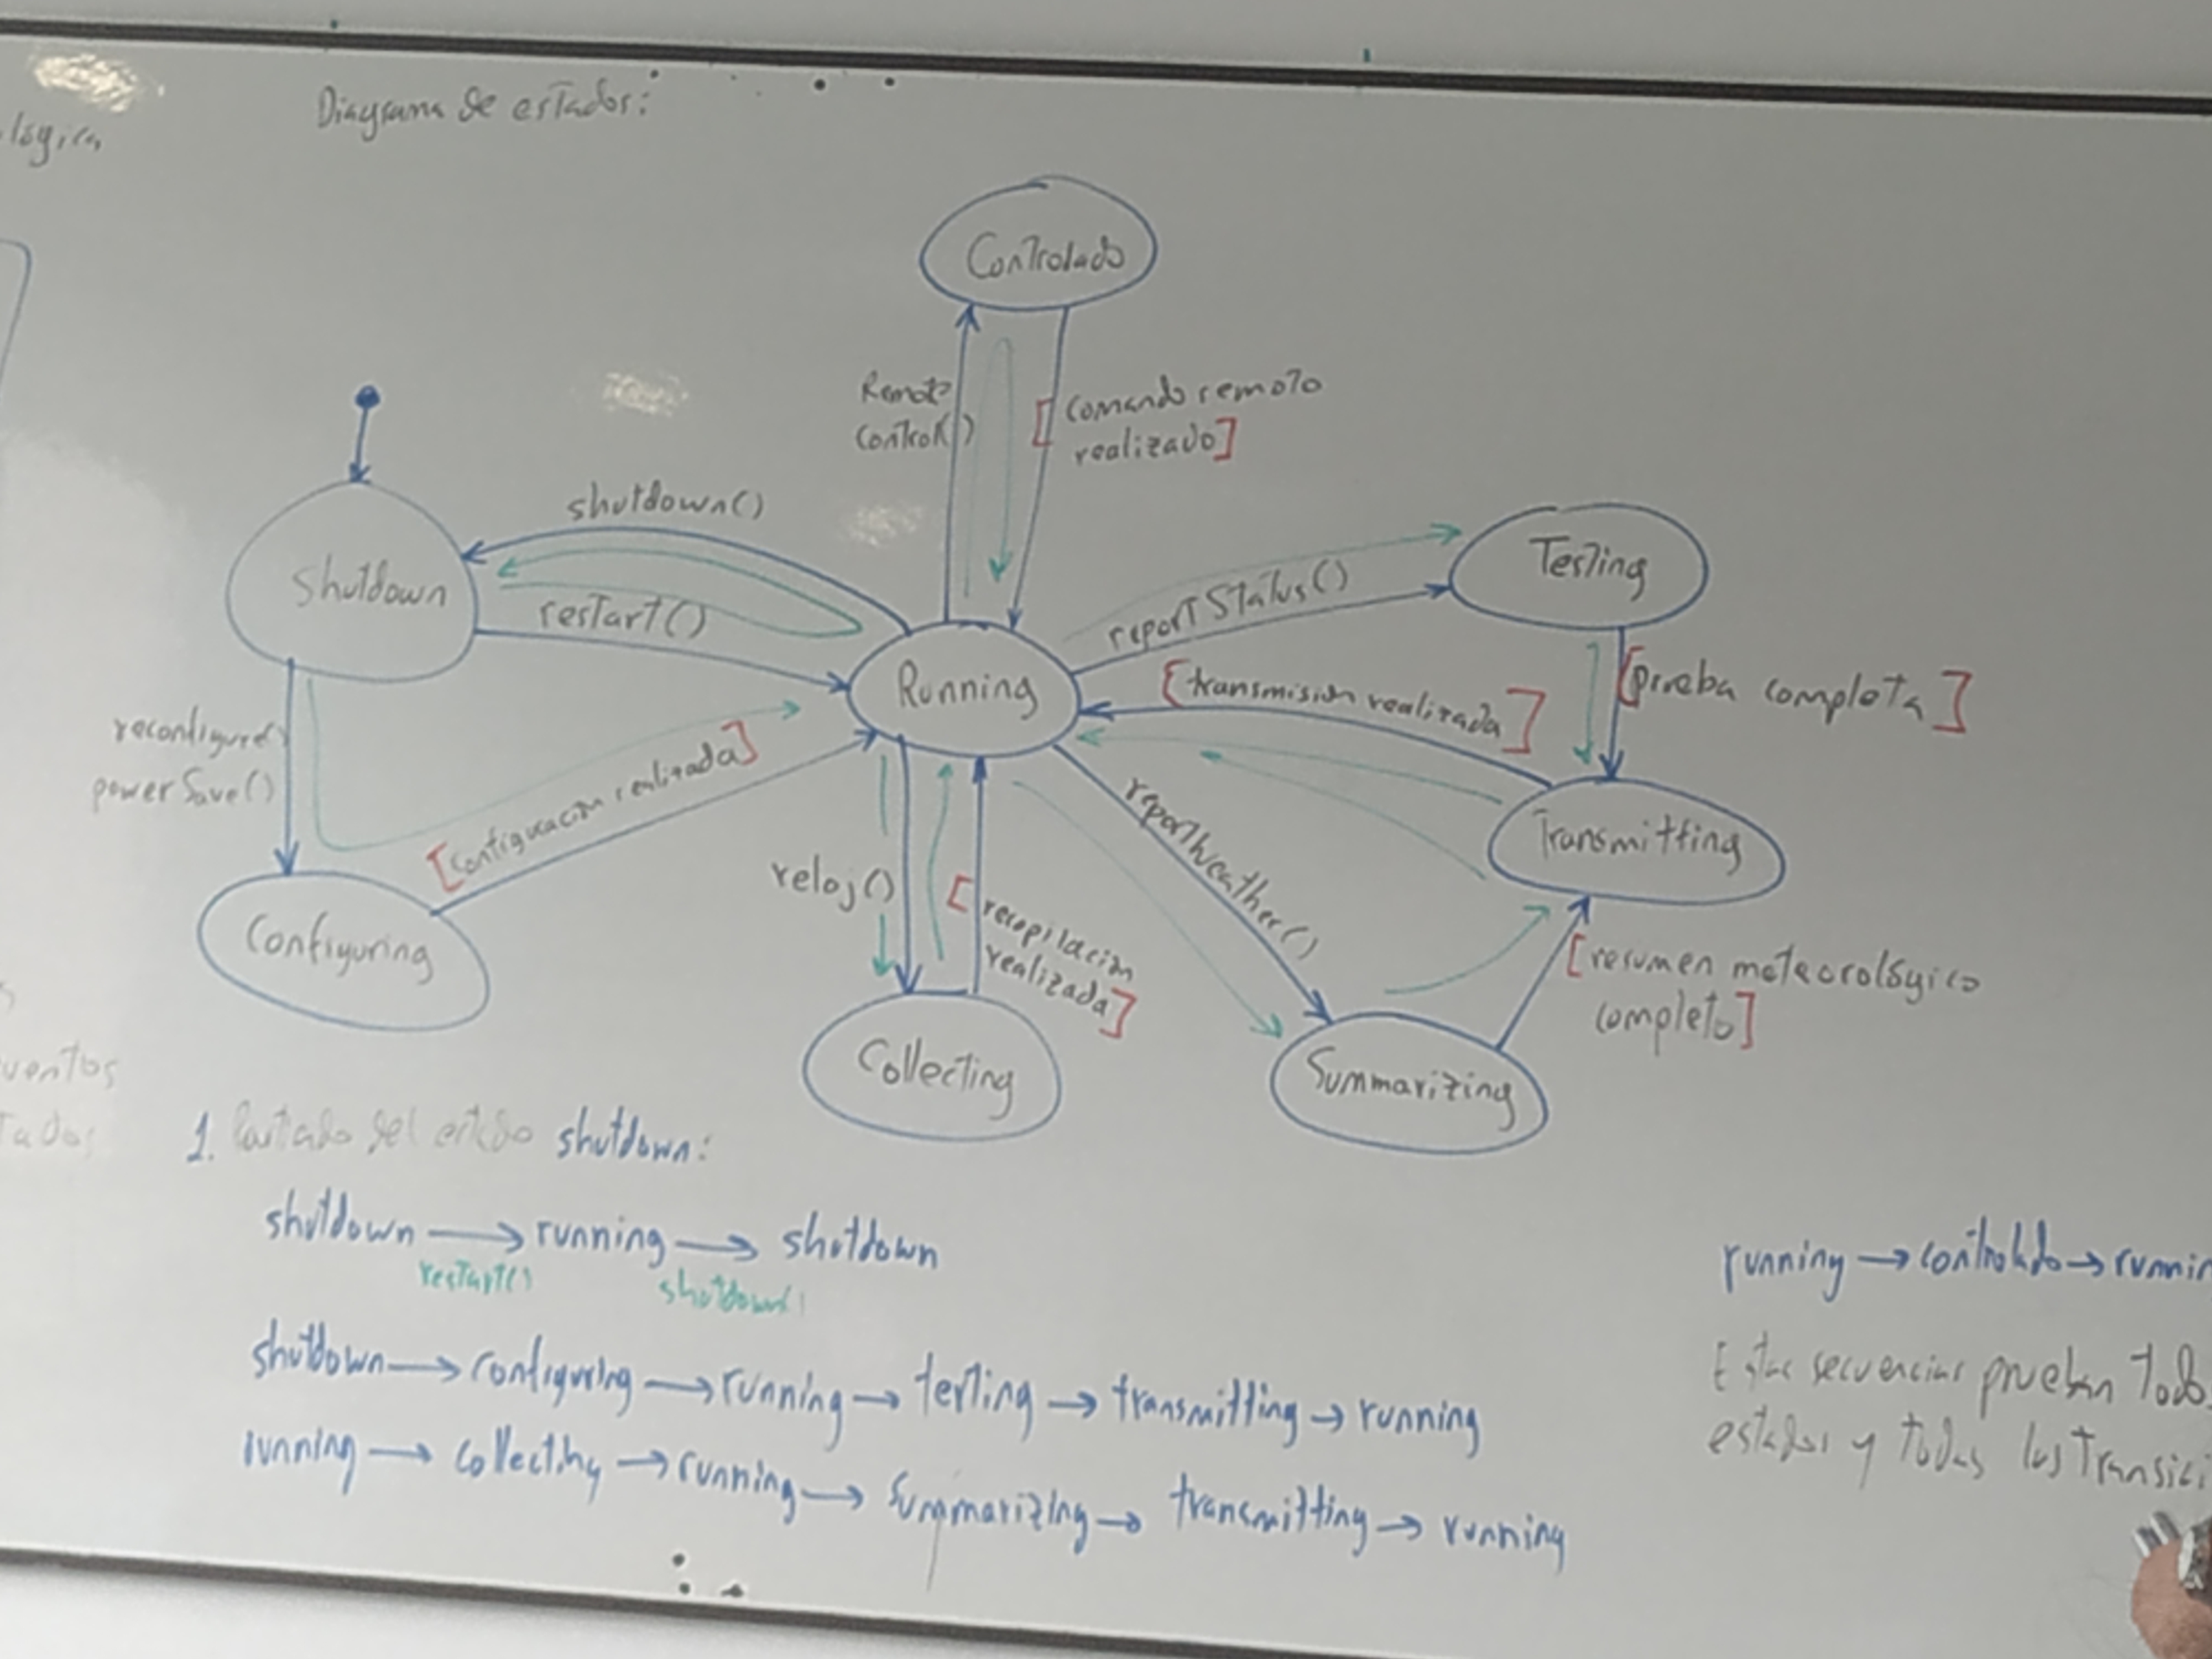 lógica
Diagrama de estados:
Controlado
Remote
control()
[comando remoto
realizado]
shutdown()
Shutdown
restart()
Running
reportStatus()
Testing
[prueba completa]
[transmisión realizada]
Transmitting
reconfigure()
powerSave()
[Configuración realizada]
Configuring
reloj()
[recopilación
realizada]
Collecting
reportWeather()
Summarizing
[resumen meteorológico
completo]
1. del estado shutdown:
shutdown → running → shutdown
restart() shutdown()
shutdown → configuring → running → testing → transmitting → running
running → collecting → running → summarizing → transmitting → running
running → controlado → runnin
Estas secuencias prueban todo
estados y todas las transici
ventos
tados